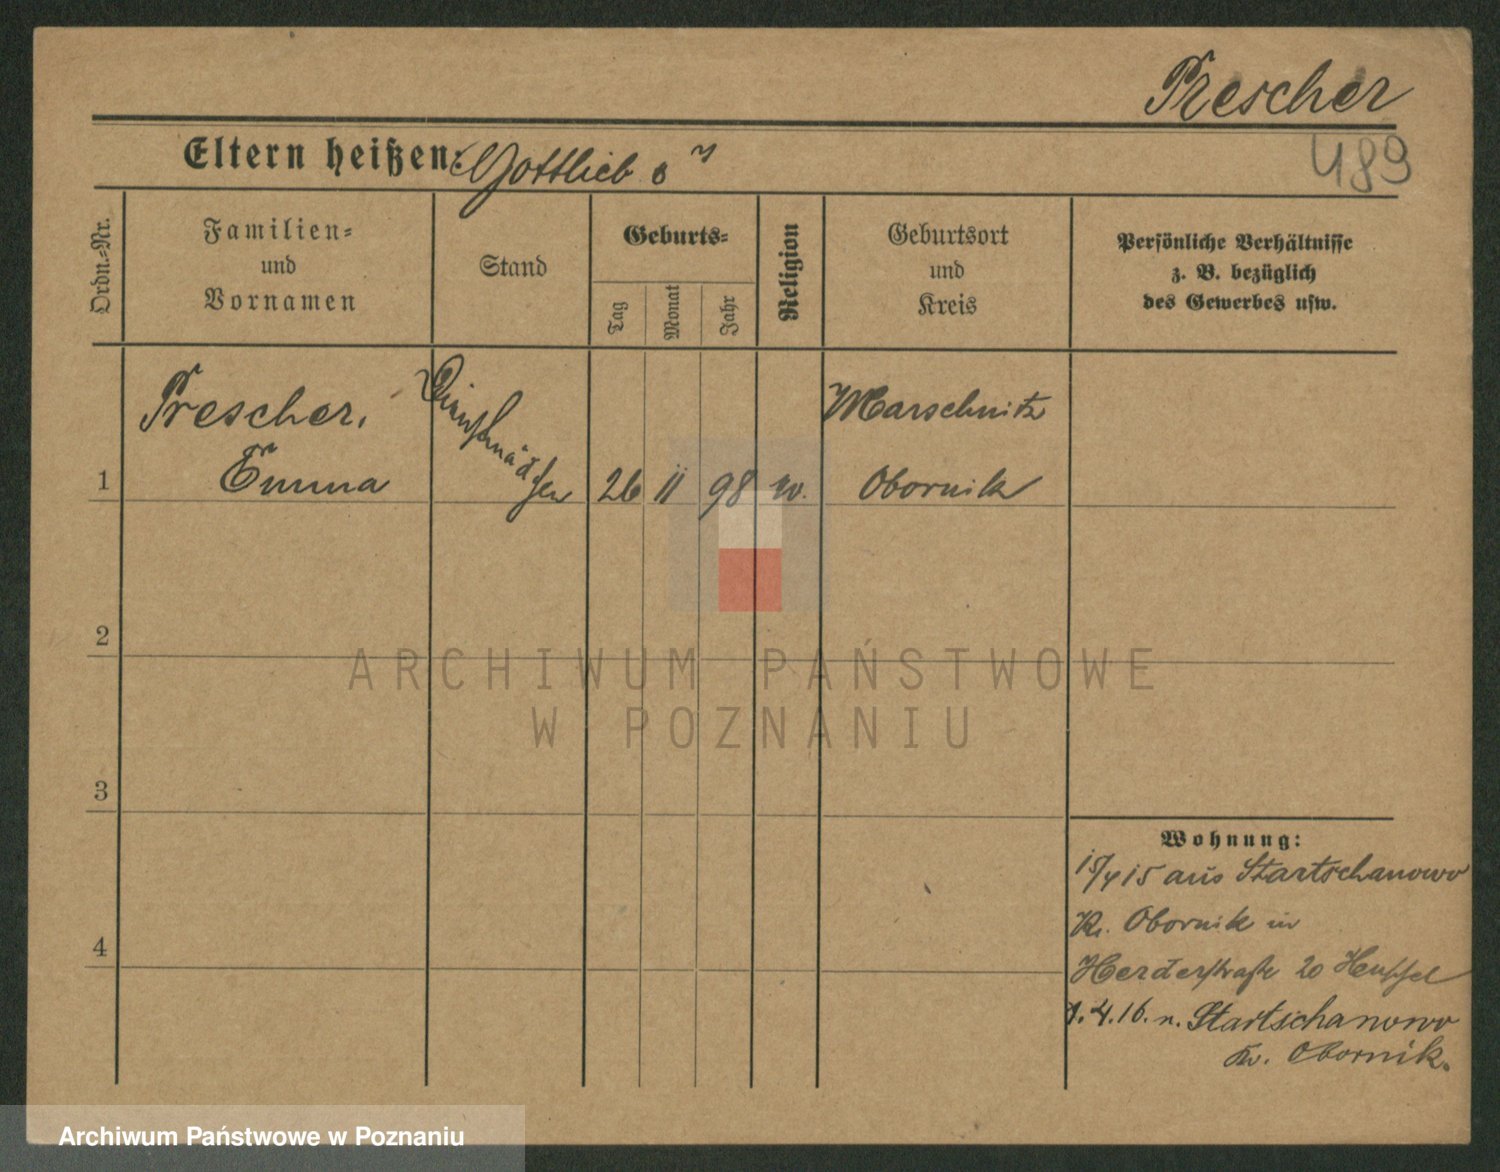 Prescher
489
Eltern heißen: Gottlieb
Ordn.-Nr.
Familien-
und
Vornamen
Stand
Geburts-
Tag
Monat
Jahr
Religion
Geburtsort
und
Kreis
Persönliche Verhältnisse
z. B. bezüglich
des Gewerbes usw.
1
Prescher,
Emma
Dienstmädchen
26 11 98
Marschnitz
Obornik
2
3
4
Wohnung:
15/4 15 aus Startschanowo
Kr. Obornik in
Herderstraße 20
1.4.16. n. Startschanowo
Kr. Obornik.
ARCHIWUM PAŃSTWOWE
W POZNANIU
Archiwum Państwowe w Poznaniu